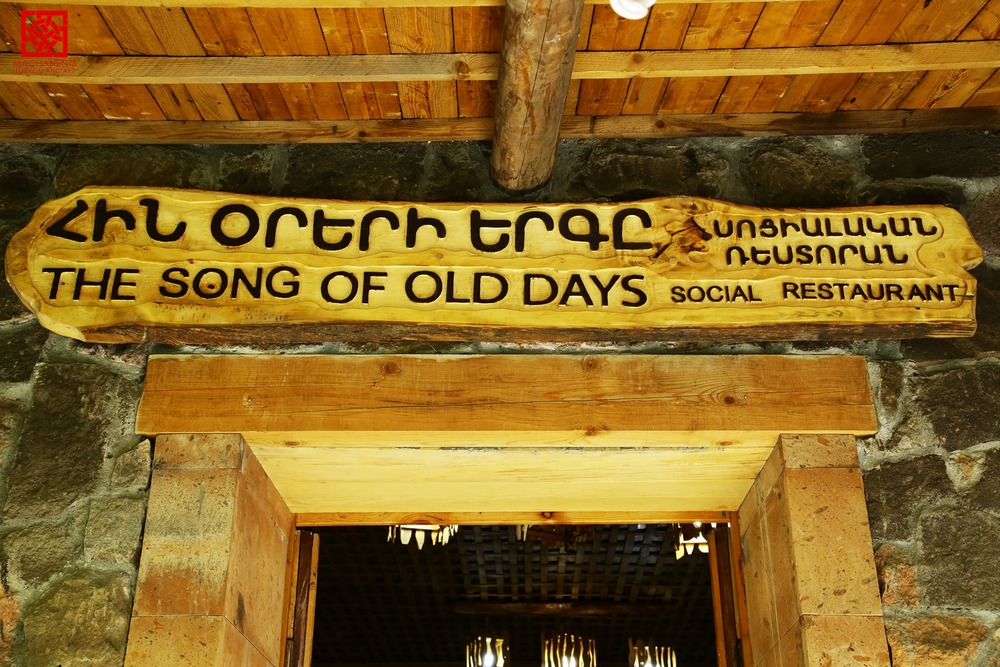 ՀԻՆ ՕՐԵՐԻ ԵՐԳԸ
THE SONG OF OLD DAYS
ՍՈՑԻԱԼԱԿԱՆ
ՌԵՍՏՈՐԱՆ
SOCIAL RESTAURANT